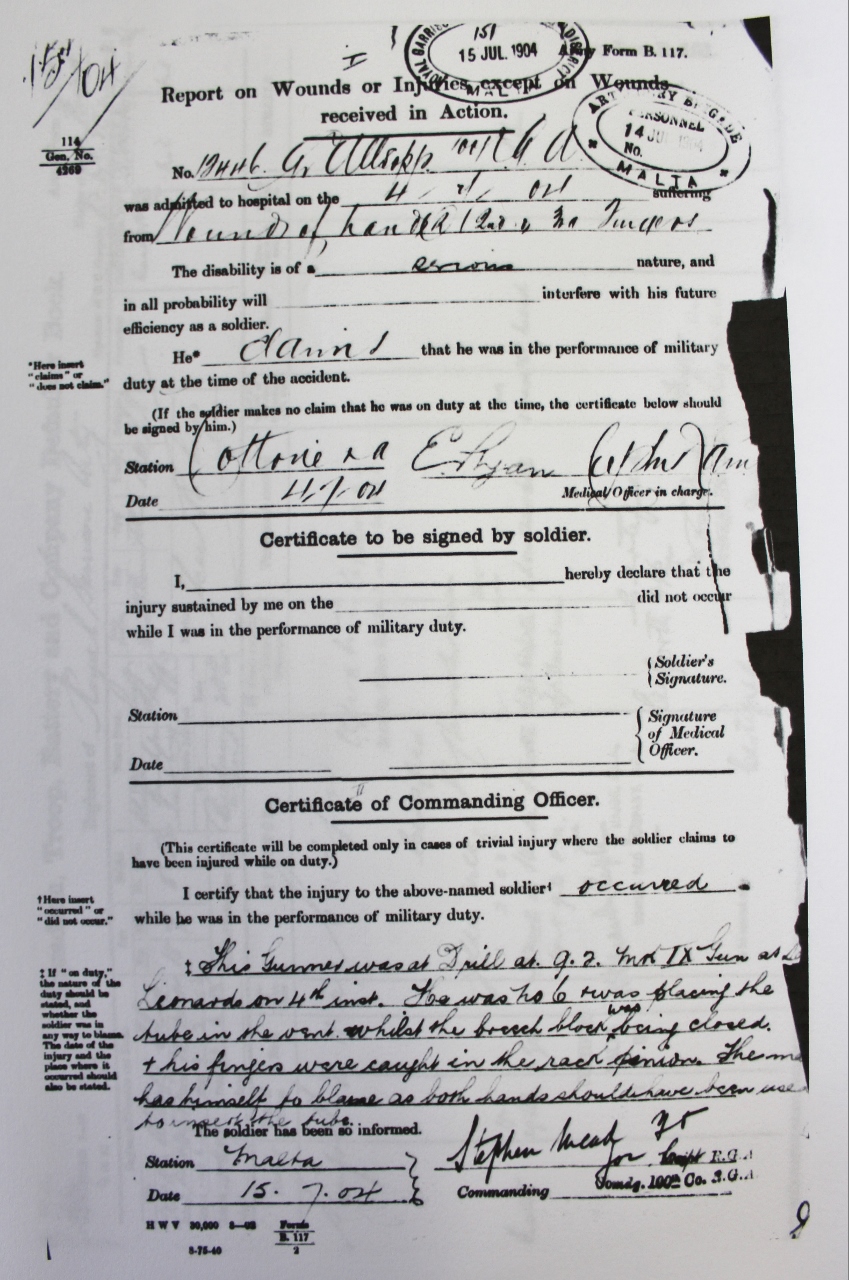 15/04
151
15 JUL. 1904
MALTA
Army Form B. 117.
Report on Wounds or Injuries, except on Wounds
received in Action.
ARTILLERY BRIGADE
PERSONNEL
14 JUL 1904
No.
MALTA
114
Gen. No.
4269
No. 12446 Gr Allsopp
was admitted to hospital on the 4/7/04 suffering
from Wound of hand 2nd & 3rd Fingers
The disability is of a serious nature, and
in all probability will interfere with his future
efficiency as a soldier.
He* claims that he was in the performance of military
*Here insert
"claims" or
"does not claim."
duty at the time of the accident.
(If the soldier makes no claim that he was on duty at the time, the certificate below should
be signed by him.)
Station Cottonera E. Ryan
Date 4.7.04 Medical Officer in charge.
Certificate to be signed by soldier.
I, hereby declare that the
injury sustained by me on the did not occur
while I was in the performance of military duty.
Soldier's
Signature.
Station
Signature
of Medical
Officer.
Date
Certificate of Commanding Officer.
(This certificate will be completed only in cases of trivial injury where the soldier claims to
have been injured while on duty.)
I certify that the injury to the above-named soldier† occurred
†Here insert
"occurred" or
"did not occur."
while he was in the performance of military duty.
‡ If "on duty,"
the nature of the
duty should be
stated, and
whether the
soldier was in
any way to blame.
The date of the
injury and the
place where it
occurred should
also be stated.
‡ This Gunner was at Drill at 9.2. Mk IX Gun at
Leonards on 4th inst. He was no 6 & was placing the
tube in the vent whilst the breech block was being closed.
& his fingers were caught in the rack & pinion. The
has himself to blame as both hands should have been
to insert the tube.
The soldier has been so informed.
Station Malta
Stephen
for Capt R.G.A
Date 15.7.04
Commanding Comdg. 100th Co. R.G.A.
H W V 30,000 Forms
B. 117
2
8-75-40